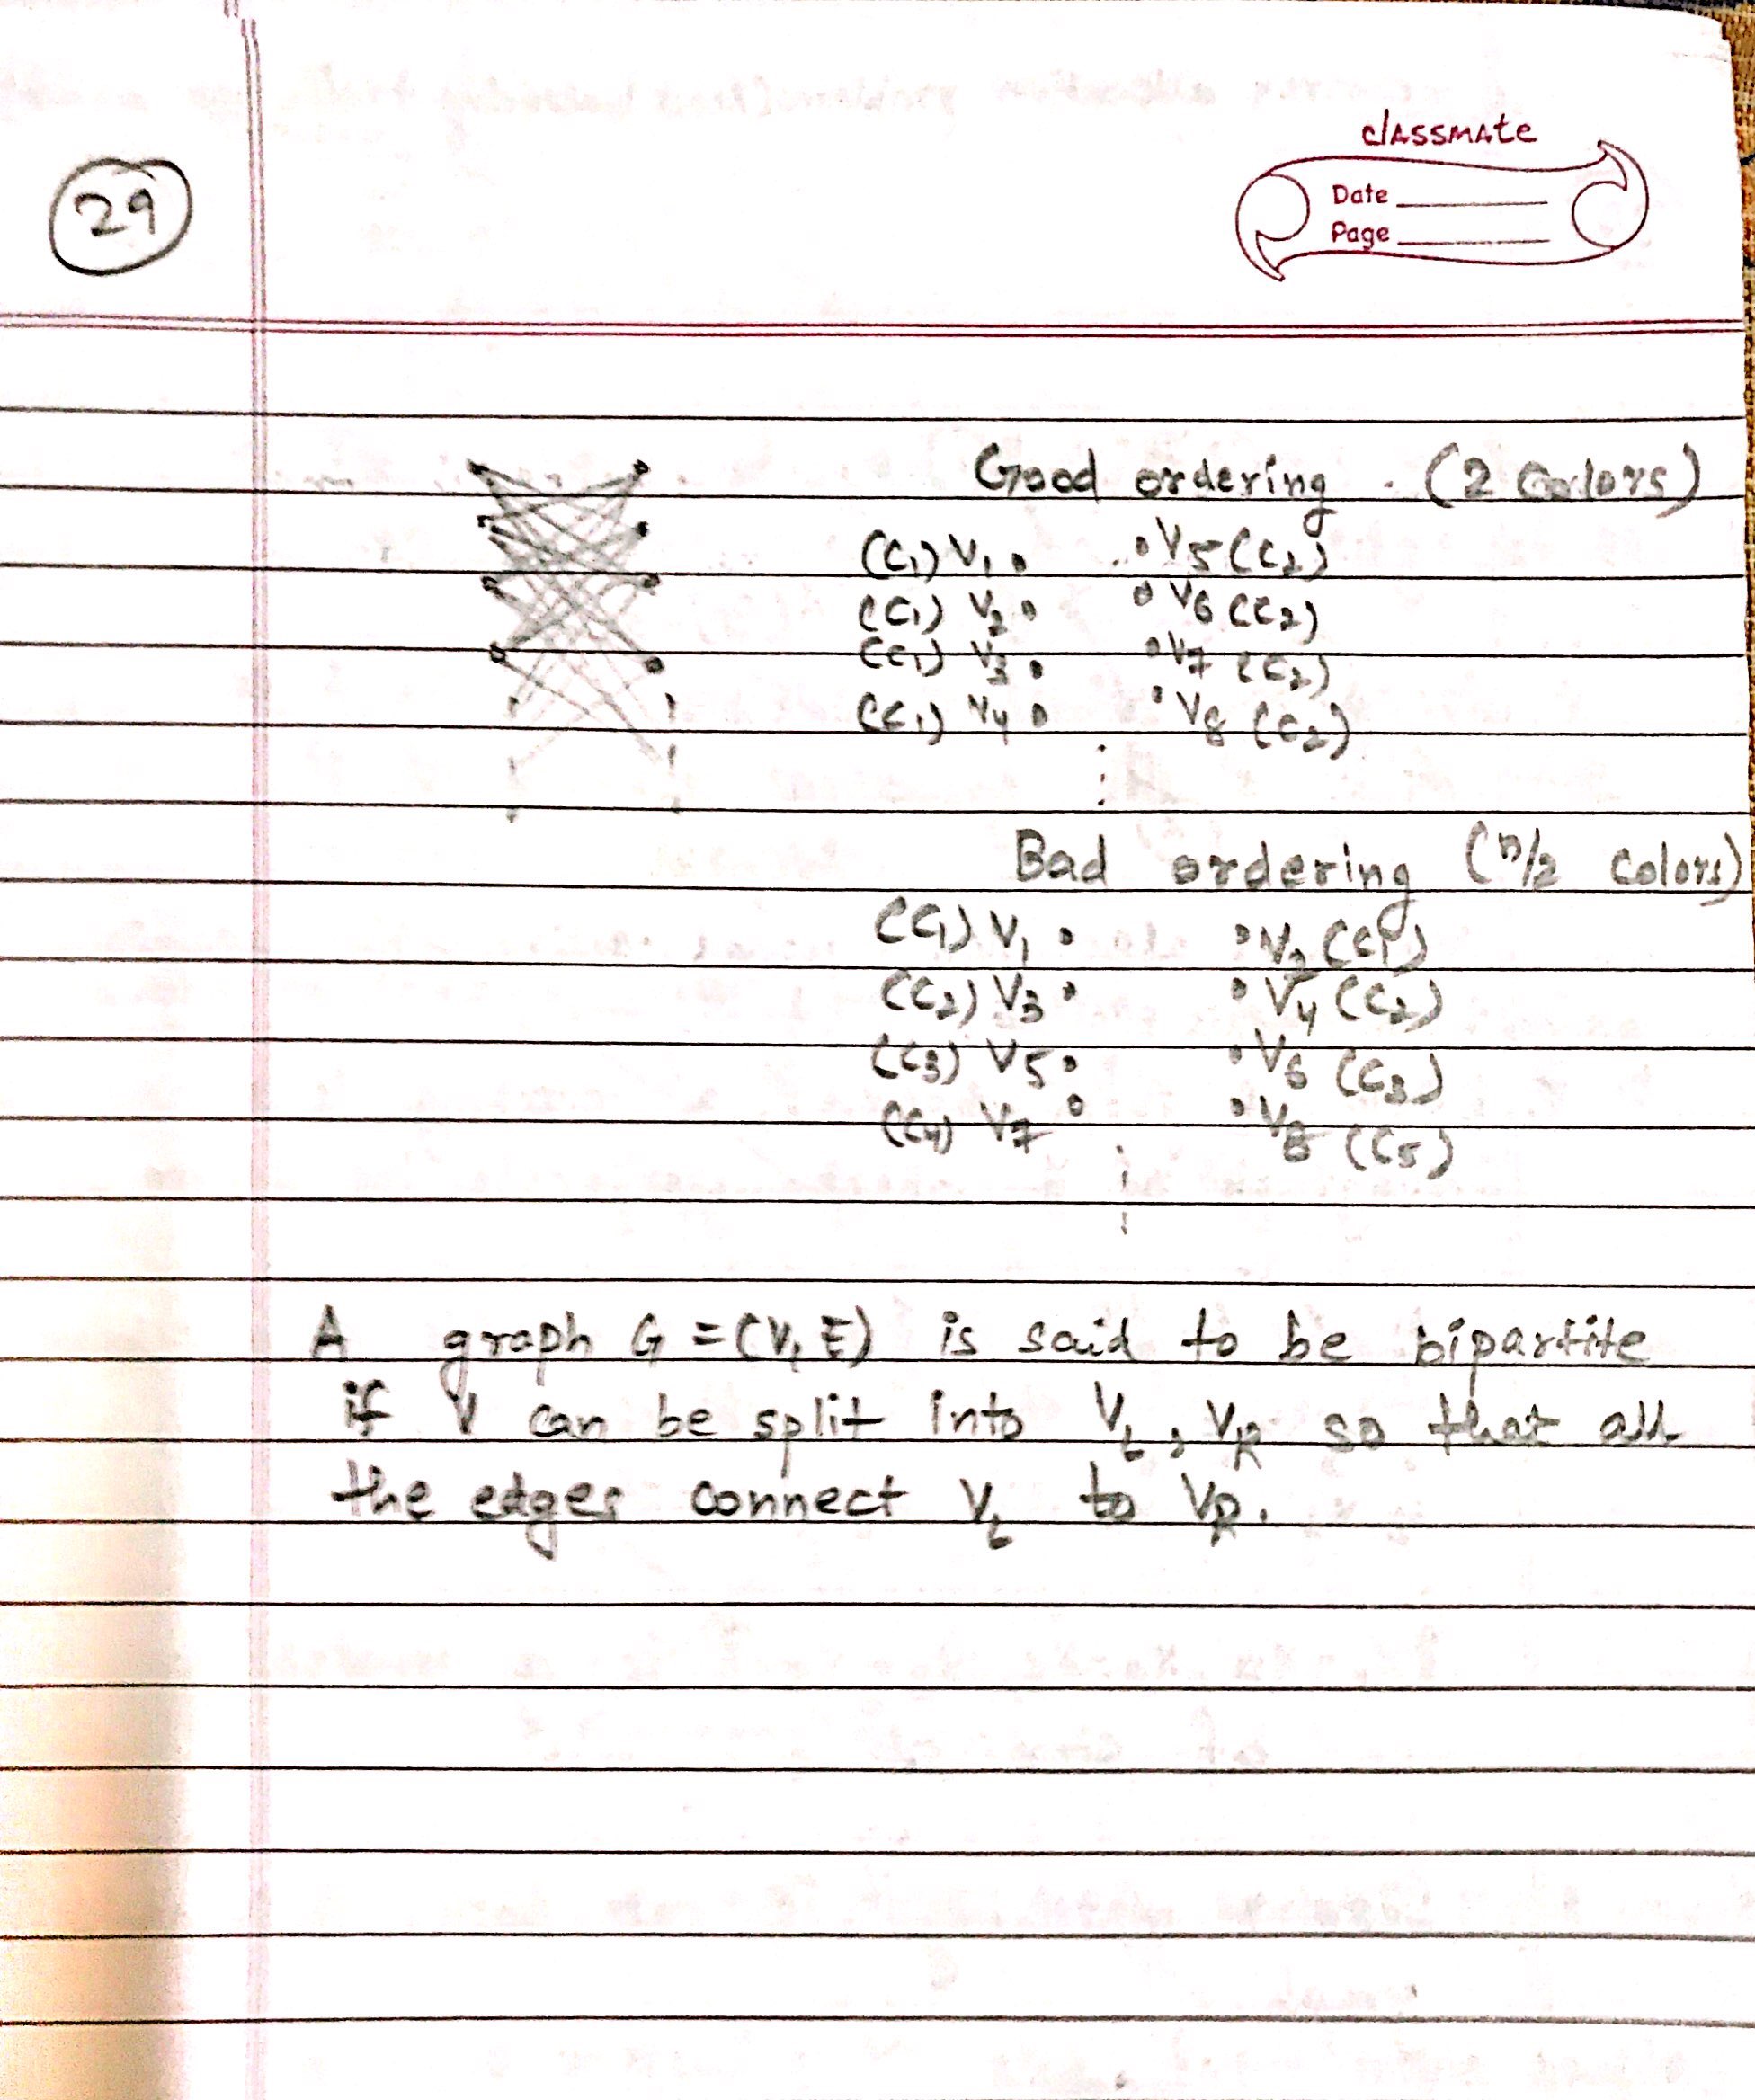 classmate
Date
Page
29
Good ordering. (2 Colors)
(C₁) V₁ • • V₅ (C₂)
(C₁) V₂ • • V₆ (C₂)
(C₁) V₃ • • V₇ (C₂)
(C₁) V₄ • • V₈ (C₂)
Bad ordering (n/2 colors)
(C₁) V₁ • • V₂ (C₁)
(C₂) V₃ • • V₄ (C₂)
(C₃) V₅ • • V₆ (C₃)
(C₄) V₇ • • V₈ (C₅)
A graph G = (V, E) is said to be bipartite
if V can be split into V_L, V_R so that all
the edges connect V_L to V_R.